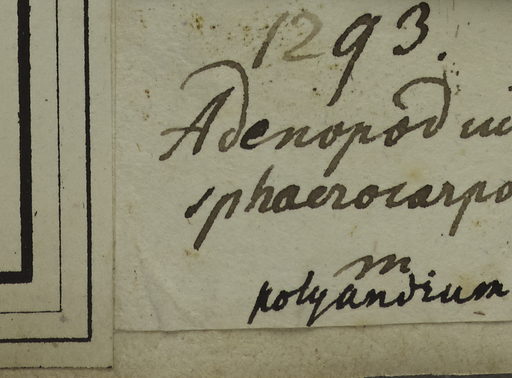 1293.
Adenopodiu
sphaerocarpo
m
polyandium